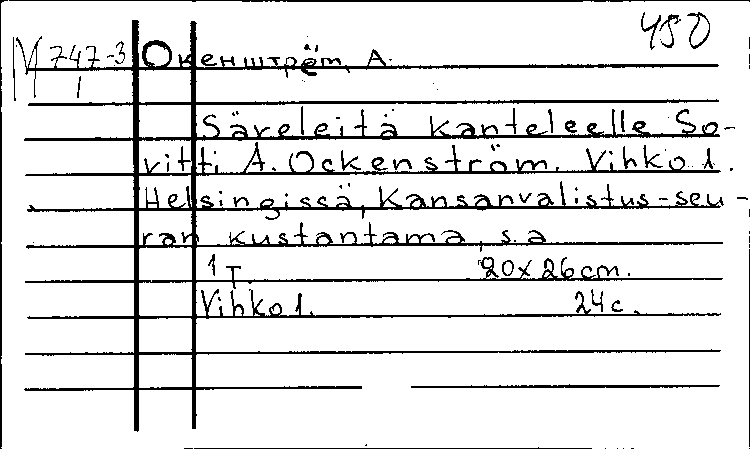 450
М 747-3
1
Окенштрём, А.
Säveleitä kanteleelle So-
vitti A. Ockenström. Vihko 1.
Helsingissä, Kansanvalistus-seu-
ran kustantama, s.a
1 т. 20x26cm.
Vihko 1. 24 c.